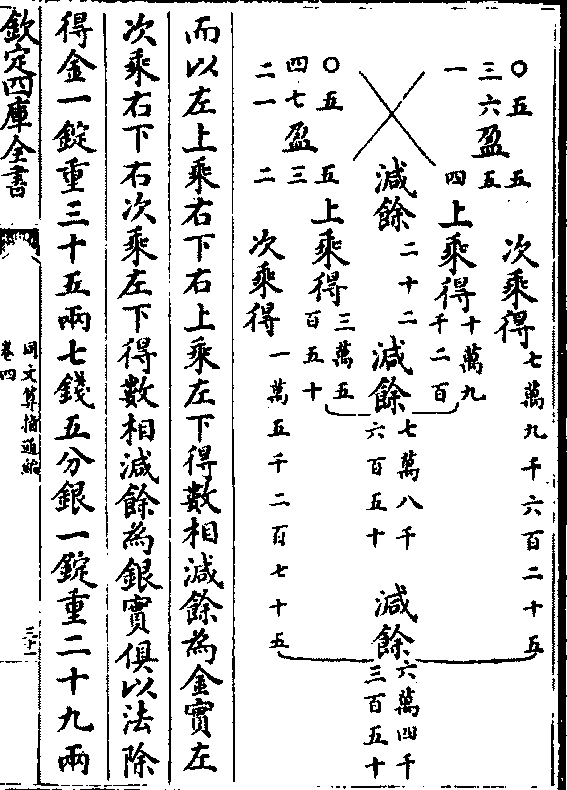 〇五 五
三六 盈 五
一 四
次乘得 七萬九千六百二十五
上乘得 十萬九千二百
減餘 二十二
減餘 七萬八千六百五十
減餘 六萬四千三百五十
〇五 五
四七 盈 三
二一 二
上乘得 三萬五百五十
次乘得 一萬五千二百七十五
而以左上乘右下右上乘左下得數相減餘為金實左
次乘右下右次乘左下得數相減餘為銀實俱以法除
得金一錠重三十五兩七錢五分銀一錠重二十九兩
欽定四庫全書
同文算指通編
卷四